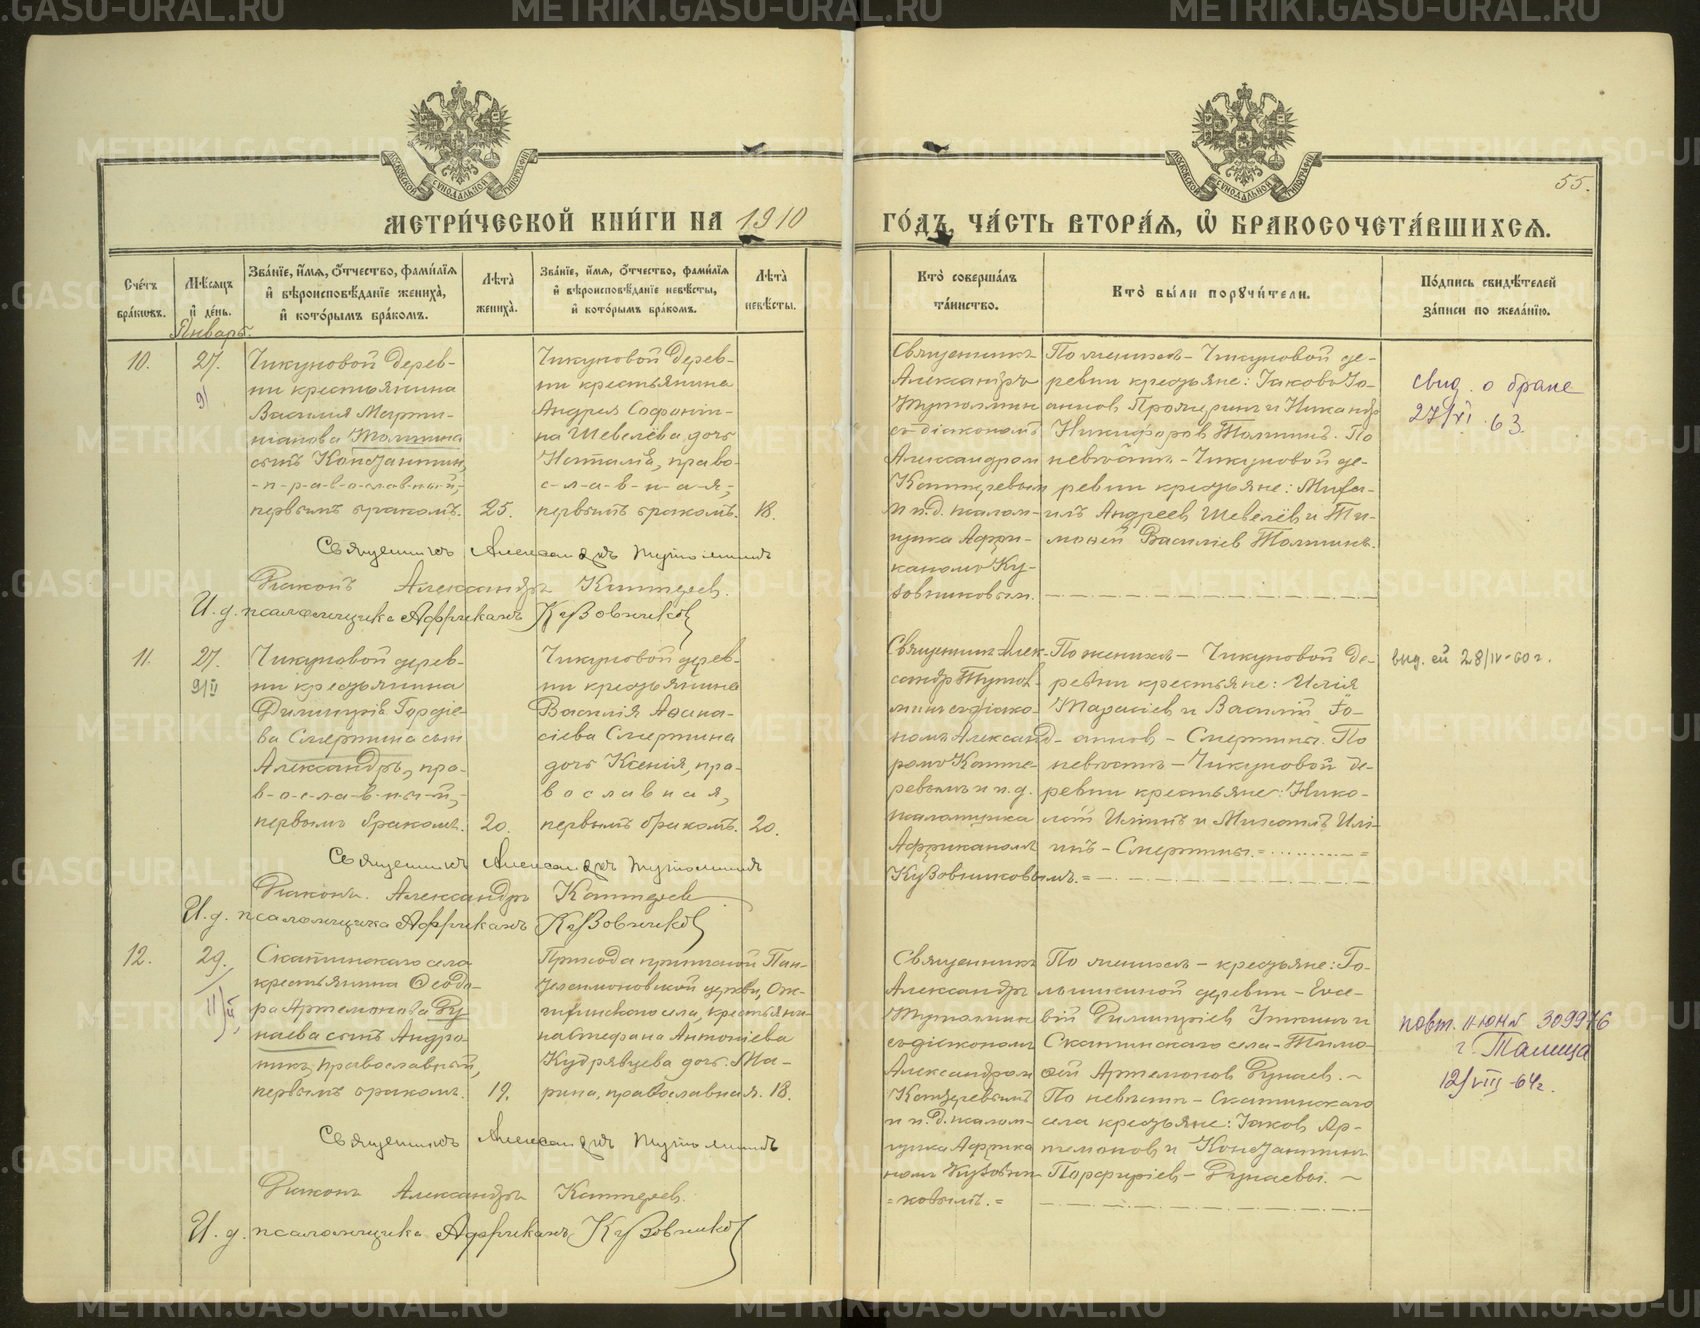 МЕТРИ́ЧЕСКОЙ КНИ́ГИ НА 1910 ГО́ДЪ, ЧА́СТЬ ВТОРА́Я, Ѽ БРАКОСОЧЕТА́ВШИХСЯ.
55.
МОСКОВСКОЙ СУНОДАЛЬНОЙ ТИПОГРАФІИ
МОСКОВСКОЙ СУНОДАЛЬНОЙ ТИПОГРАФІИ
Сче́тъ бра́кωвъ.
Мѣ́сяцъ и҆ де́нь.
Зва́нїе, и҆́мя, ѻ҆́тчество, фами́лїя и҆ вѣроисповѣ́данїе жениха̀, и҆ кото́рымъ бра́комъ.
Лѣ́та̀ жениха̀.
Зва́нїе, и҆́мя, ѻ҆́тчество, фами́лїя и҆ вѣроисповѣ́данїе невѣ́сты, и҆ кото́рымъ бра́комъ.
Лѣ́та̀ невѣ́сты.
Кто̀ соверша́лъ та́инство.
Кто̀ бы́ли порꙋчи́тели.
По́дпись свидѣ́телей за́писи по жела́нїю.
Январь.
10.
27.
9/
Чикуновой дерев-
ни крестьянина
Василія Марти-
ніанова Толтина
сынъ Константин,
-п-р-а-в-о-славный,-
первымъ бракомъ.
25.
Чикуновой дерев-
ни крестьянина
Андрея Софоніи-
на Шевелёва дочь
Наталія, право-
с-л-а-в-н-а-я-,
первымъ бракомъ.
18.
Священникъ
Александръ
съ діакономъ
Александром
и и.д. псалом-
щика Афри-
каномъ Ку-
зовниковым.
По женихѣ - Чикуновой де-
ревни крестьяне: Іаковъ Іо-
Никифоров Толтинъ. По
невѣстѣ - Чикуновой де-
ревни крестьяне: Миха-
илъ Андреев Шевелёв и Ти-
моѳей Василіев Толтинъ.
свид. о браке
27/XI 63.
Священникъ Александръ
Діаконъ Александръ
И. д. псаломщика Африканъ Кузовников
11.
27.
9/II
Чикуновой дерев-
ни крестьянина
Димитрія Гордіе-
ва Смертина сын
Александръ, пра-
в-о-с-л-а-в-н-ы-й,-
первымъ бракомъ.
20.
Чикуновой дерев-
ни крестьянина
Василія Аѳана-
сіева Смертина
дочь Ксенія, пра-
вославная,
первымъ бракомъ.
20.
Священник Алек-
номъ Александ-
и и. д.
псаломщика
Африканомъ
Кузовниковымъ.
По женихѣ - Чикуновой де-
ревни крестьяне: Илія
Тарасіев и Василій Іо-
аннов - Смертины. По
невѣстѣ - Чикуновой де-
ревни крестьяне: Нико-
лай Иліинъ и Михаилъ Илі-
инъ - Смертины.
выд. ей 28/IV-60 г.
Священникъ Александръ
Діаконъ Александръ
И. д. псаломщика Африканъ Кузовников
12.
29.
11/II
Скатинскаго села
крестьянина Ѳеодо-
ра Артемонова Ду-
наева сынъ Андро-
никъ, православный,
первымъ бракомъ.
19.
Прихода приписной Пан-
телеимоновской церкви,
села, крестьяни-
на Стефана Антоніева
Кудрявцева дочь Ма-
рина, православная.
18.
Священникъ
Александръ
съ діакономъ
Александром
и и. д. псалом-
щика Африка-
номъ Кузовни-
ковымъ.
По женихѣ - крестьяне: Го-
лышкиной деревни - Евсе-
вій Димитріев
Скатинскаго села - Тимо-
ѳей Артемонов Дунаев.
По невѣстѣ - Скатинскаго
села крестьяне: Іаков Ар-
темонов и Константинъ
Порфиріев - Дунаевы.
повт. II-ЮН № 309976
г. Талица
12/VIII-64г.
Священникъ Александръ
Діаконъ Александръ
И. д. псаломщика Африканъ Кузовников
METRIKI.GASO-URAL.RU